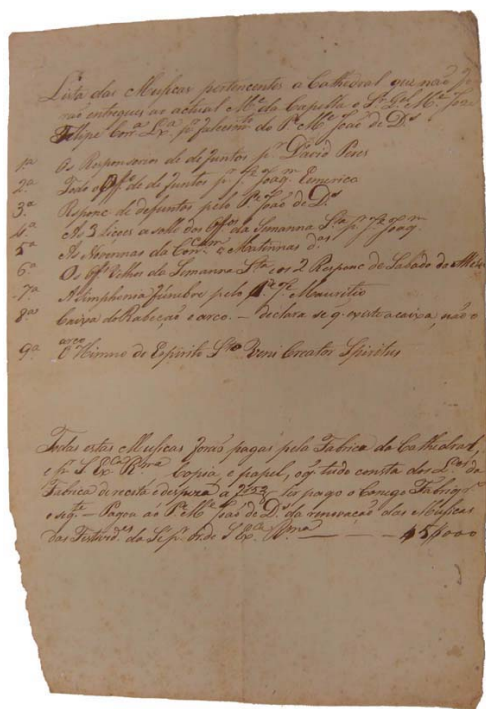 Lista das Musicas pertencentes a Cathedral que não fo
rão entregues ao actual M.e da Capella o S.r M.el Joze
Felipe Corr.a p.r falecim.to do P.e M.e João de D.s
1.a Os Responsorios de defuntos p.r David Peres
2.a Todo o Off.o de defuntos p.r J. Joaq.m Emerico
3.a Responc de defuntos pelo P.e João de D.s
4.a As 3 liçoes a sollo dos Off.os da Simanna S.ta p.r J. Joaq.m
5.a As Novennas da Con.cam e Antennas d.as
6.a Os Off.os Velhos da Simanna S.ta e os 2 Responc de Sabado de
7.a A Simphonia funebre pelo P.e J.e Mauritio
8.as Caixa do Rabecão e arco. – declara se q. existe a caixa, não o
arco
9.a O Himno do Espirito S.to Veni Creator Spiritus
Todas estas Musicas forão pagas pela Fabrica da Cathedral,
e p.r S. Ex.cia R.ma Copia, e papel, o q. tudo consta dos L.os da
Fabrica de receita e despeza a ter pago o Conego Fabriq.ro
o seg.te – Pagou ao P.e M.e João de D.s da renovação das Musicas
das Festivid.es da Sé p.r ord. de S. Ex.cia R.ma — — — 45$000